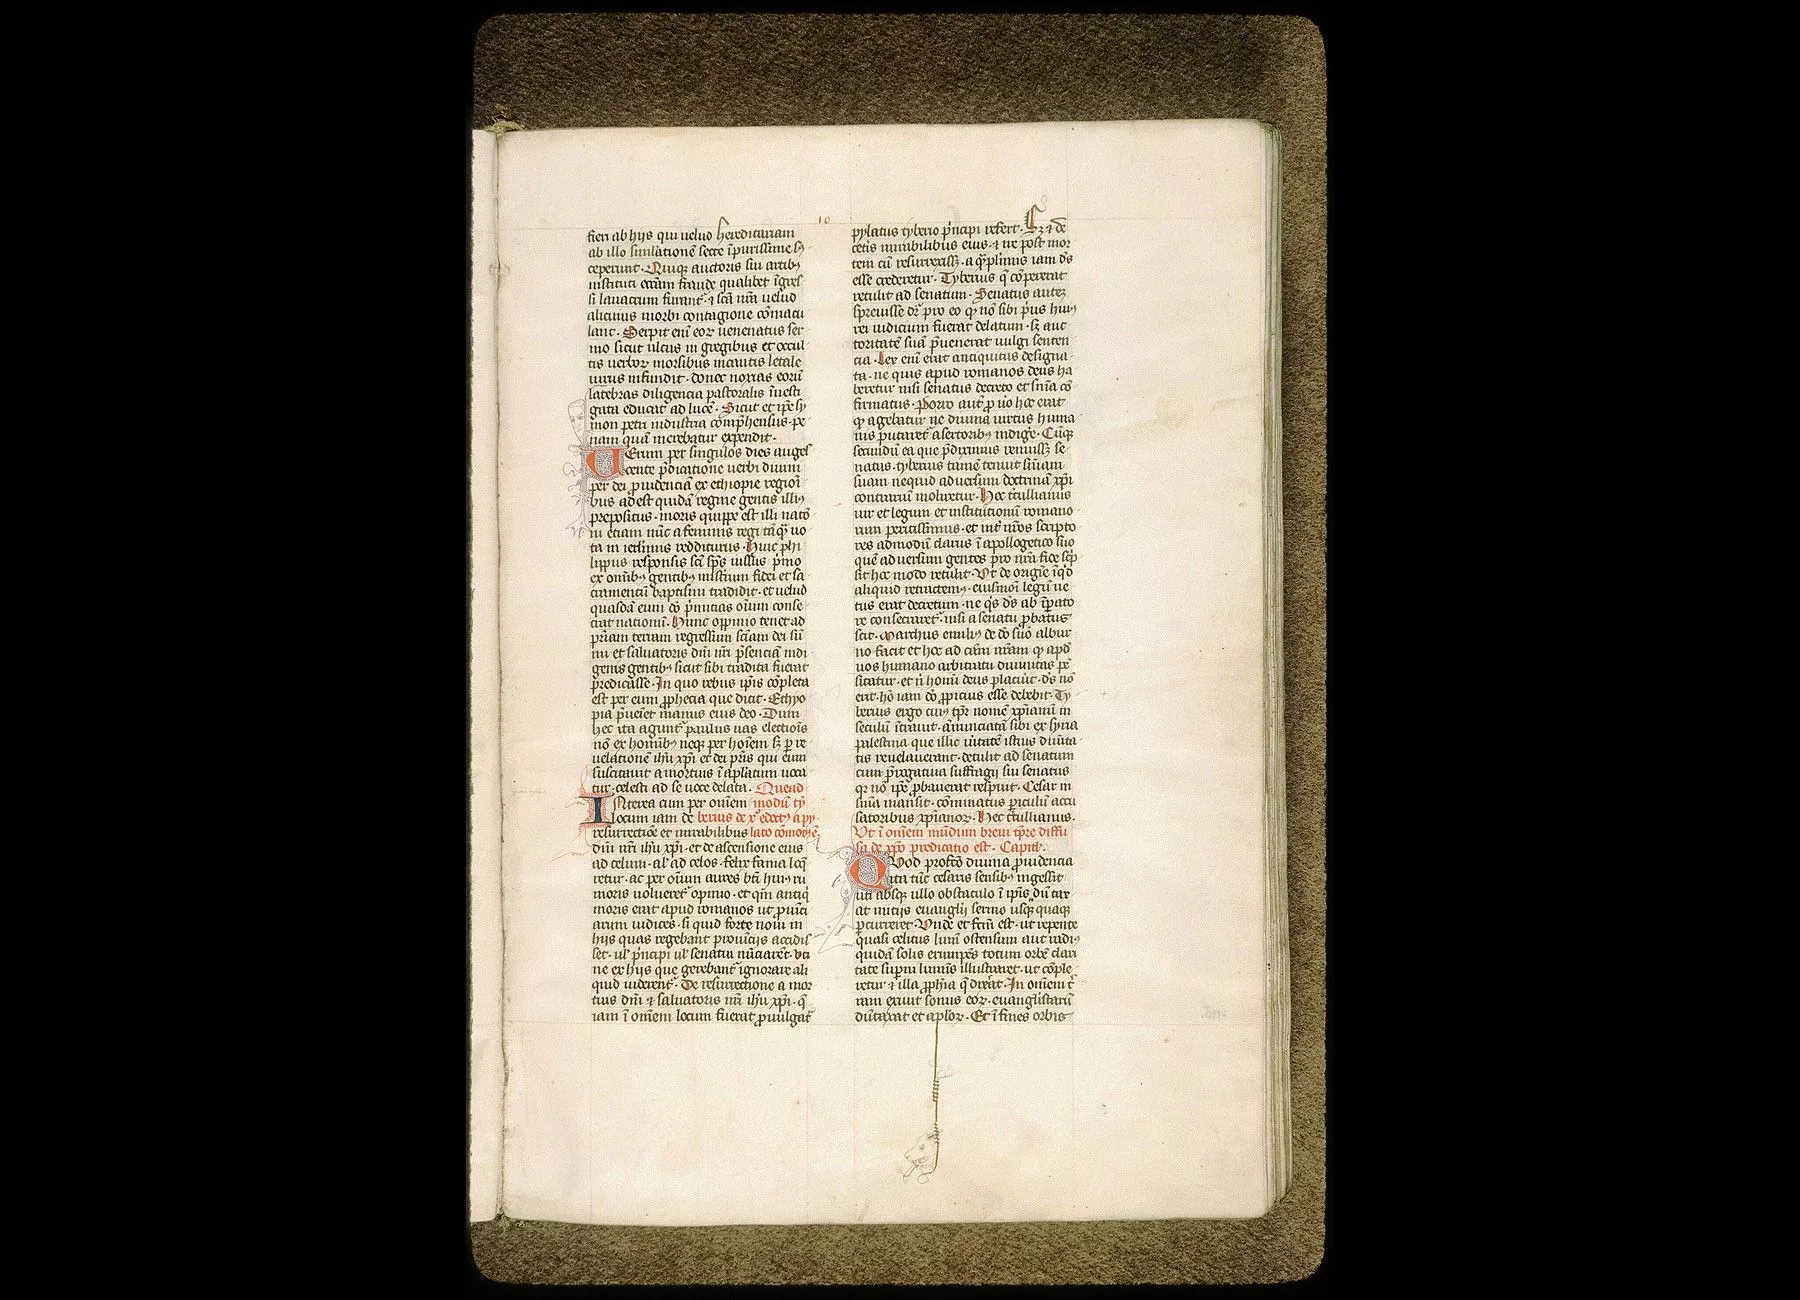 10
fieri ab hijs qui uelud hereditariam
ab illo simlationē secte īpurissime sꝰ
ceperunt. Quiqꝫ auctoris sui artibꝰ
instituti eciam fraude qualibet īgres
si lauacrum furant᷑. ⁊ scā nr̄a uelud
alicuius morbi contagione cōmacu
lant. Serpit enī eoꝝ uenenatus ser
mo sicut ulcus in gregibus et occul
tis uerboꝝ morsibus incautis letale
uirus infundit. donec noxias eorū
latebras diligencia pastoralis īuesti
gata educat ad lucē. Sicut et ip̄e sy
mon petri industria comp̄hensus. pe
nam quā merebatur expendit.
UErum per singulos dies auges
cente p̄dicatione uerbi diuini
per dei ꝓuidenciā ex ethiopie regioī
bus adest quidā regine gentis illiꝰ
prepositus. moris quippe est illi natō
ni etiam nūc a feminis regi
ta in ierl̄imis redditurus. Huic phi
lippus responsis scī sp̄s uissus p̄mo
ex omībꝰ gentibꝰ misterium fidei et sa
cramentū baptismi tradidit. et uelud
quasdā eum dō p̄mitias om̄ium conse
crat nationū. Hunc oppinio tenet ad
pr̄iam terram regressum sciam dei sū
mi et saluatoris dn̄i nr̄i p̄senciā indi
genis gentibꝰ sicut sibi tradita fuerat
predicasse. In quo rebus ip̄is cōpleta
est per eum ꝓphecia que dicit. Ethyo
pia p̄ueiet manus eius deo. Dum
hec ita agunt᷑ paulus uas electiois
nō ex homībꝰ neqꝫ per hoīem sꝫ ꝑ re
uelationē ih̄u xp̄i et dei pr̄is qui eum
suscitauit a mortuis ī aplatum uoca
tur. celesti ad se uoce delata. Quend
INterea cum per omem modū ty
locum iam de berius de xº edoctꝰ a py
resurrectiōe et mirabilibus lato cōmotꝰ ē.
dn̄i nr̄i ih̄u xp̄i. et de ascensione eius
ad celum. al' ad celos. felix fama loq̄
retur. ac per om̄ium aures bt̄i huiꝰ ru
moris uolueret᷑ opinio. et qm̄ antiq̄
moris erat apud romanos ut ꝓuīci
arum iudices. si quid forte noui in
hijs quas regebant prouincijs accidis
set. ul' p̄ncipi ul' senatui nūciarēt. uti
ne ex hijs que gerebant᷑ ignorare ali
quid uiderent᷑. De resurrectione a mor
tuis dn̄i ⁊ saluatoris nr̄i ih̄u xp̄i. q̄
iam ī omēm locum fuerat ꝓuulgat᷑
pylatus tyberio p̄ncipi refert. Sꝫ ⁊ de
cetis mirabilibus eius. ⁊ ut post mor
tem cū resurrexissꝫ. a q̄ plimis iam ds̄
esse crederetur. Tyberius q̄ cōpererat
retulit ad senatum. Senatus autēꝫ
spreuisse dr̄. pro eo qꝫ nō sibi p̄us huiꝰ
rei iudicium fuerat delatum. sꝫ auc
toritatē suā p̄uenerat uulgi senten
cia. Lex enī erat antiquitus designa
ta. ne quis apud romanos deus ha
beretur nisi senatus decreto et sn̄ia cō
firmatus. Porro aut᷑ ꝑ uo hoc erat
qꝫ agebatur ne diuina uirtus huma
nis putaret᷑ asertoribꝰ indige᷑. Cūqꝫ
secundū ea que p̄diximus renuissꝫ se
natus. tyberius tamē tenuit sn̄iam
suam nequid aduersum doctrinā xp̄i
contrariū moliretur. Hec t̄tullianus
uir et legum et institutionū romano
rum peritissimus. et int᷑ nr̄os scripto
res admodū clarus ī apollogetico suo
quē aduersum gentes pro nr̄a fide sc̄p
sit hoc modo retulit. Vt de origīe īqd
aliquid retractemꝰ. eiusmōi legū ue
tus erat decretum. ne q̄s ds̄ ab īꝑato
re consecraret᷑. nisi a senatu ꝓbatus
scit. Marchus emiliꝰ de dō suō albur
no facit et hoc ad cām nr̄am qꝫ apd̄
uos humano arbitratu diuinitas pē
sitatur. et n̄ hōnī deus placuit. ds̄ nō
erit. hō iam dō ꝓpicius esse debebit. Ty
berius ergo cuiꝰ tp̄r nomē xp̄ianū in
seculū ītrauit. ānunciatā sibi ex syria
palestina que illic uītatē istius diuīta
tis reuelauerant. detulit ad senatum
cum p̄rogatiua suffragij sui senatus
qꝫ nō ip̄e ꝓbauerat respuit. Cesar in
sn̄ia mansit. cōminatus ꝑiculū accu
satoribus xp̄ianoꝝ. Hec t̄tullianus.
Vt ī om̄em mūdum breui tp̄re diffu
sa de xp̄o predicatio est. Capit̄.
QVod profcō diuina ꝓuidencia
ita tūc cesaris sensibꝰ ingessit
uti absqꝫ ullo obstaculo ī ip̄is dū tax
at inicijs euanglij sermo usqꝫ quaqꝫ
ꝑcurreret. Vnde et fcm̄ est. ut repente
quasi celitus lumē ostensum aut radiꝰ
quidā solis erumpēs totum orbē clari
tate superni luminis illustraret. ut cōple
retur ⁊ illa ꝓphīa q̄ dixit. In omēm t̄
ram exiuit sonus eoꝝ. euangelistarū
dūtaxat et aploꝝ. Et ī fines orbis